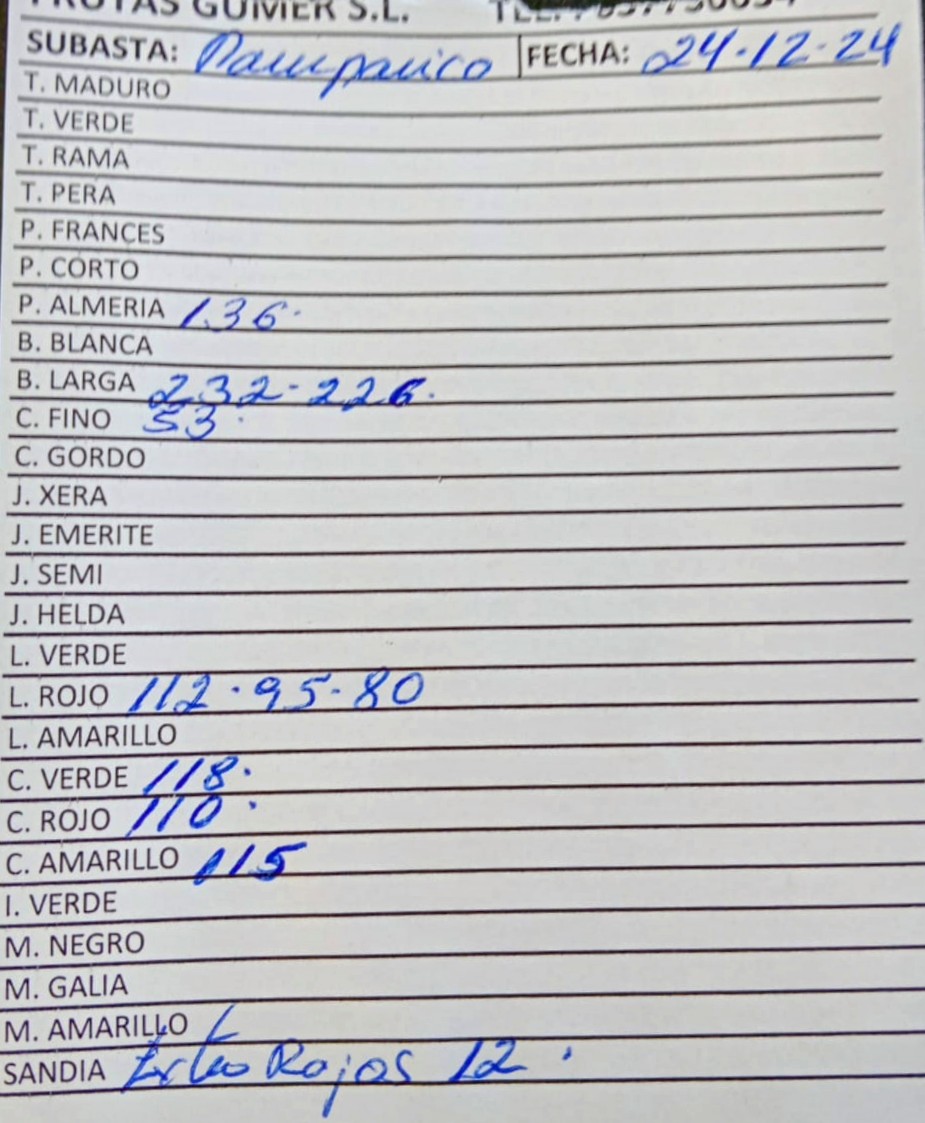 FRUTAS GUMER S.L. TEL.
SUBASTA: Pampanico FECHA: 24-12-24
T. MADURO
T. VERDE
T. RAMA
T. PERA
P. FRANCES
P. CORTO
P. ALMERIA 136.
B. BLANCA
B. LARGA 232-226.
C. FINO 53.
C. GORDO
J. XERA
J. EMERITE
J. SEMI
J. HELDA
L. VERDE
L. ROJO 112-95-80
L. AMARILLO
C. VERDE 118.
C. ROJO 110.
C. AMARILLO 115
I. VERDE
M. NEGRO
M. GALIA
M. AMARILLO
SANDIA Rojas 12.